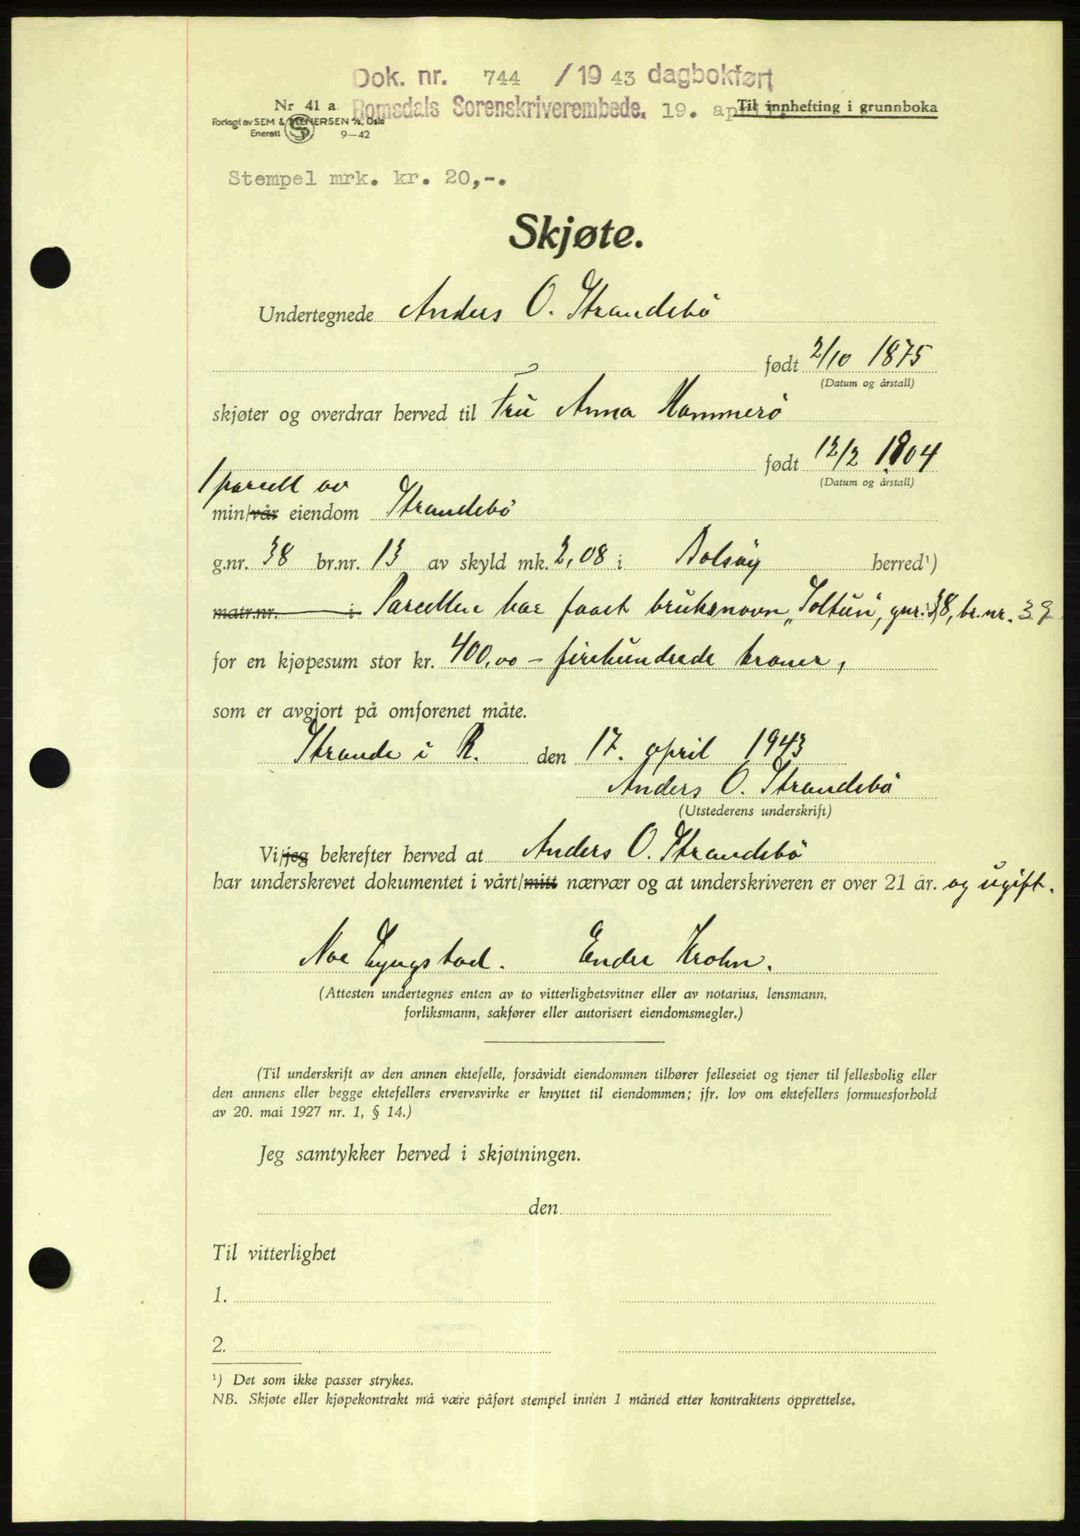 Dok. nr. 744 /1943 dagbokført
Nr 41 a Romsdals Sorenskriverembede. 19. april Til innhefting i grunnboka
Forlagt av SEM & STENERSEN A/S, Oslo
Enerett 9—42
Stempel mrk. kr. 20,-.
Skjøte.
Undertegnede Anders O. Strandebø
født 2/10 1875
(Datum og årstall)
skjøter og overdrar herved til Fru Anna Hammerö
født 12/2 1804
(Datum og årstall)
1 parcell av
min/vår eiendom Strandebö
g.nr. 38 br.nr. 13 av skyld mk. 2,08 i Bolsöy herred¹)
matr.nr. i Parcellen har faaet bruksnavn "Soltun", gnr. 38, br.nr. 39
for en kjøpesum stor kr. 400,00 - firehundrede kroner,
som er avgjort på omforenet måte.
Strande i R. den 17. april 1943
Anders O. Strandebö
(Utstederens underskrift)
Vi/jeg bekrefter herved at Anders O. Strandebö
har underskrevet dokumentet i vårt/mitt nærvær og at underskriveren er over 21 år. og ugift.
Lyngstad. Endre Krohn.
(Attesten undertegnes enten av to vitterlighetsvitner eller av notarius, lensmann,
forliksmann, sakfører eller autorisert eiendomsmegler.)
(Til underskrift av den annen ektefelle, forsåvidt eiendommen tilhører felleseiet og tjener til fellesbolig eller
den annens eller begge ektefellers ervervsvirke er knyttet til eiendommen; jfr. lov om ektefellers formuesforhold
av 20. mai 1927 nr. 1, § 14.)
Jeg samtykker herved i skjøtningen.
den
Til vitterlighet
1.
2.
¹) Det som ikke passer strykes.
NB. Skjøte eller kjøpekontrakt må være påført stempel innen 1 måned etter kontraktens opprettelse.